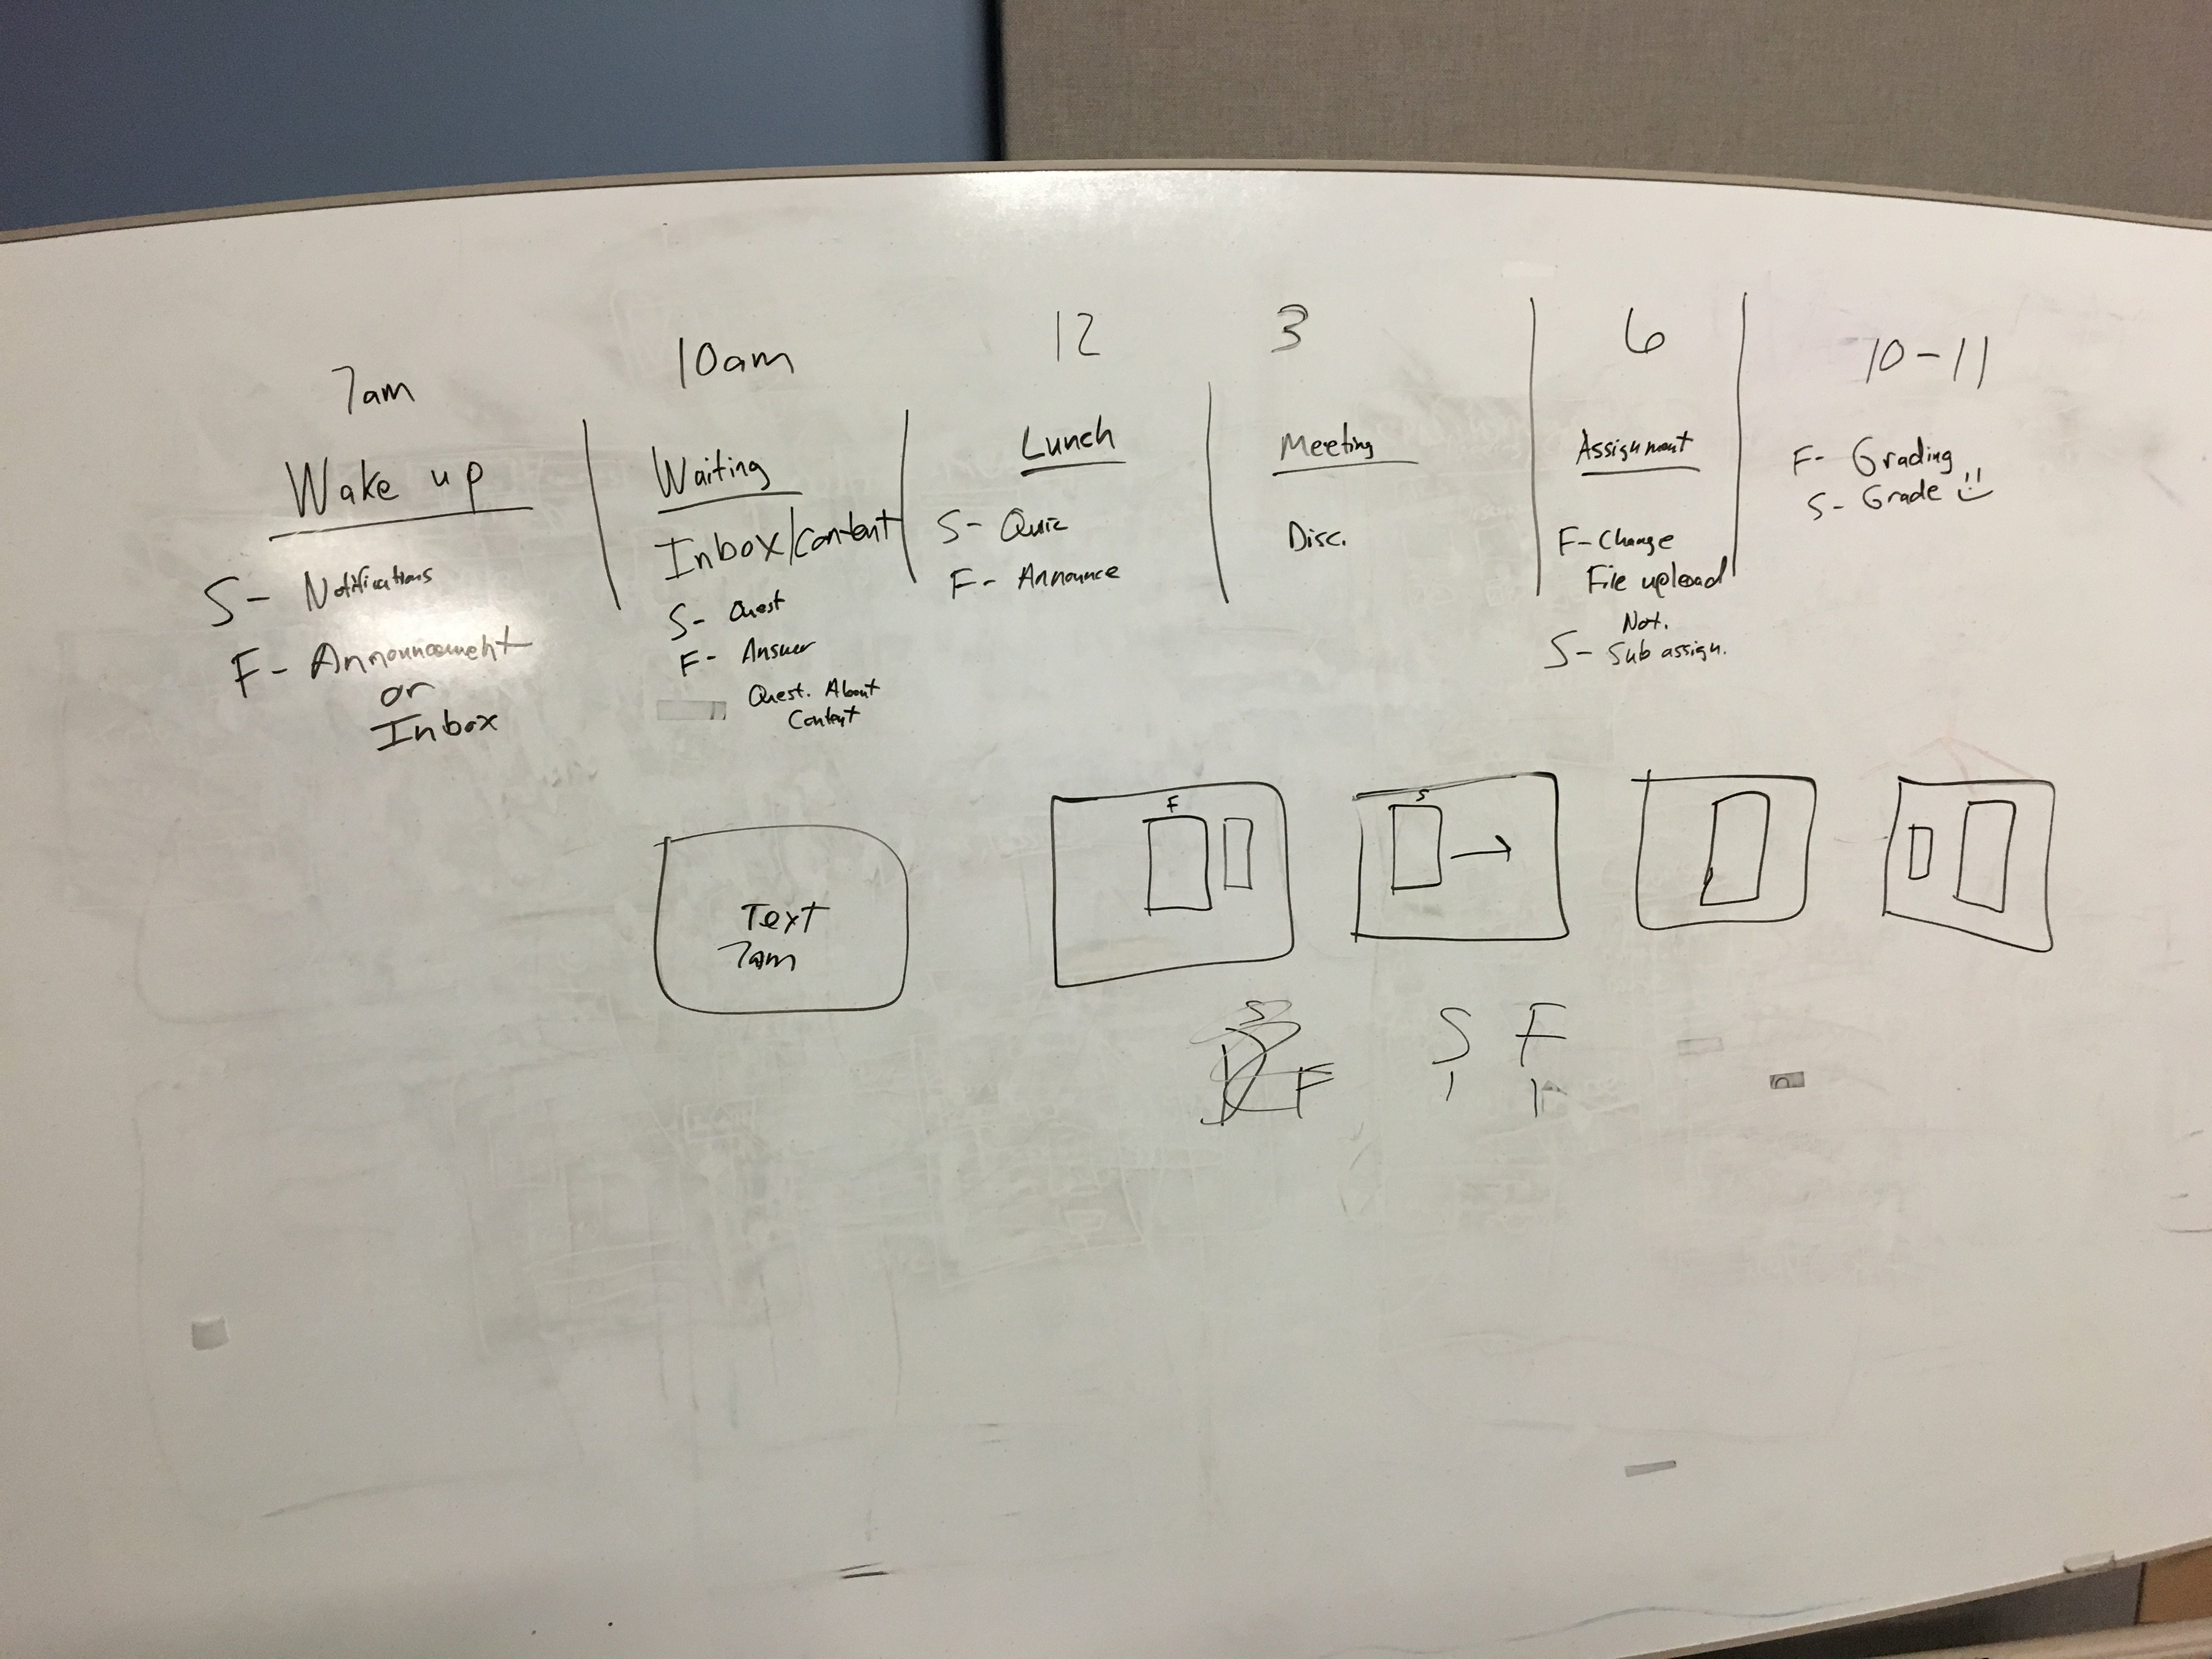 7am
Wake up
S- Notifications
F- Announcement
or
Inbox
10am
Waiting
Inbox/content
S- Quest
F- Answer
Quest. About
Content
12
Lunch
S- Quiz
F- Announce
3
Meeting
Disc.
6
Assignment
F-Change
File upload
Not.
S- Sub assign.
10-11
F- Grading
S- Grade
Text
7am
F
S
S
F
S F